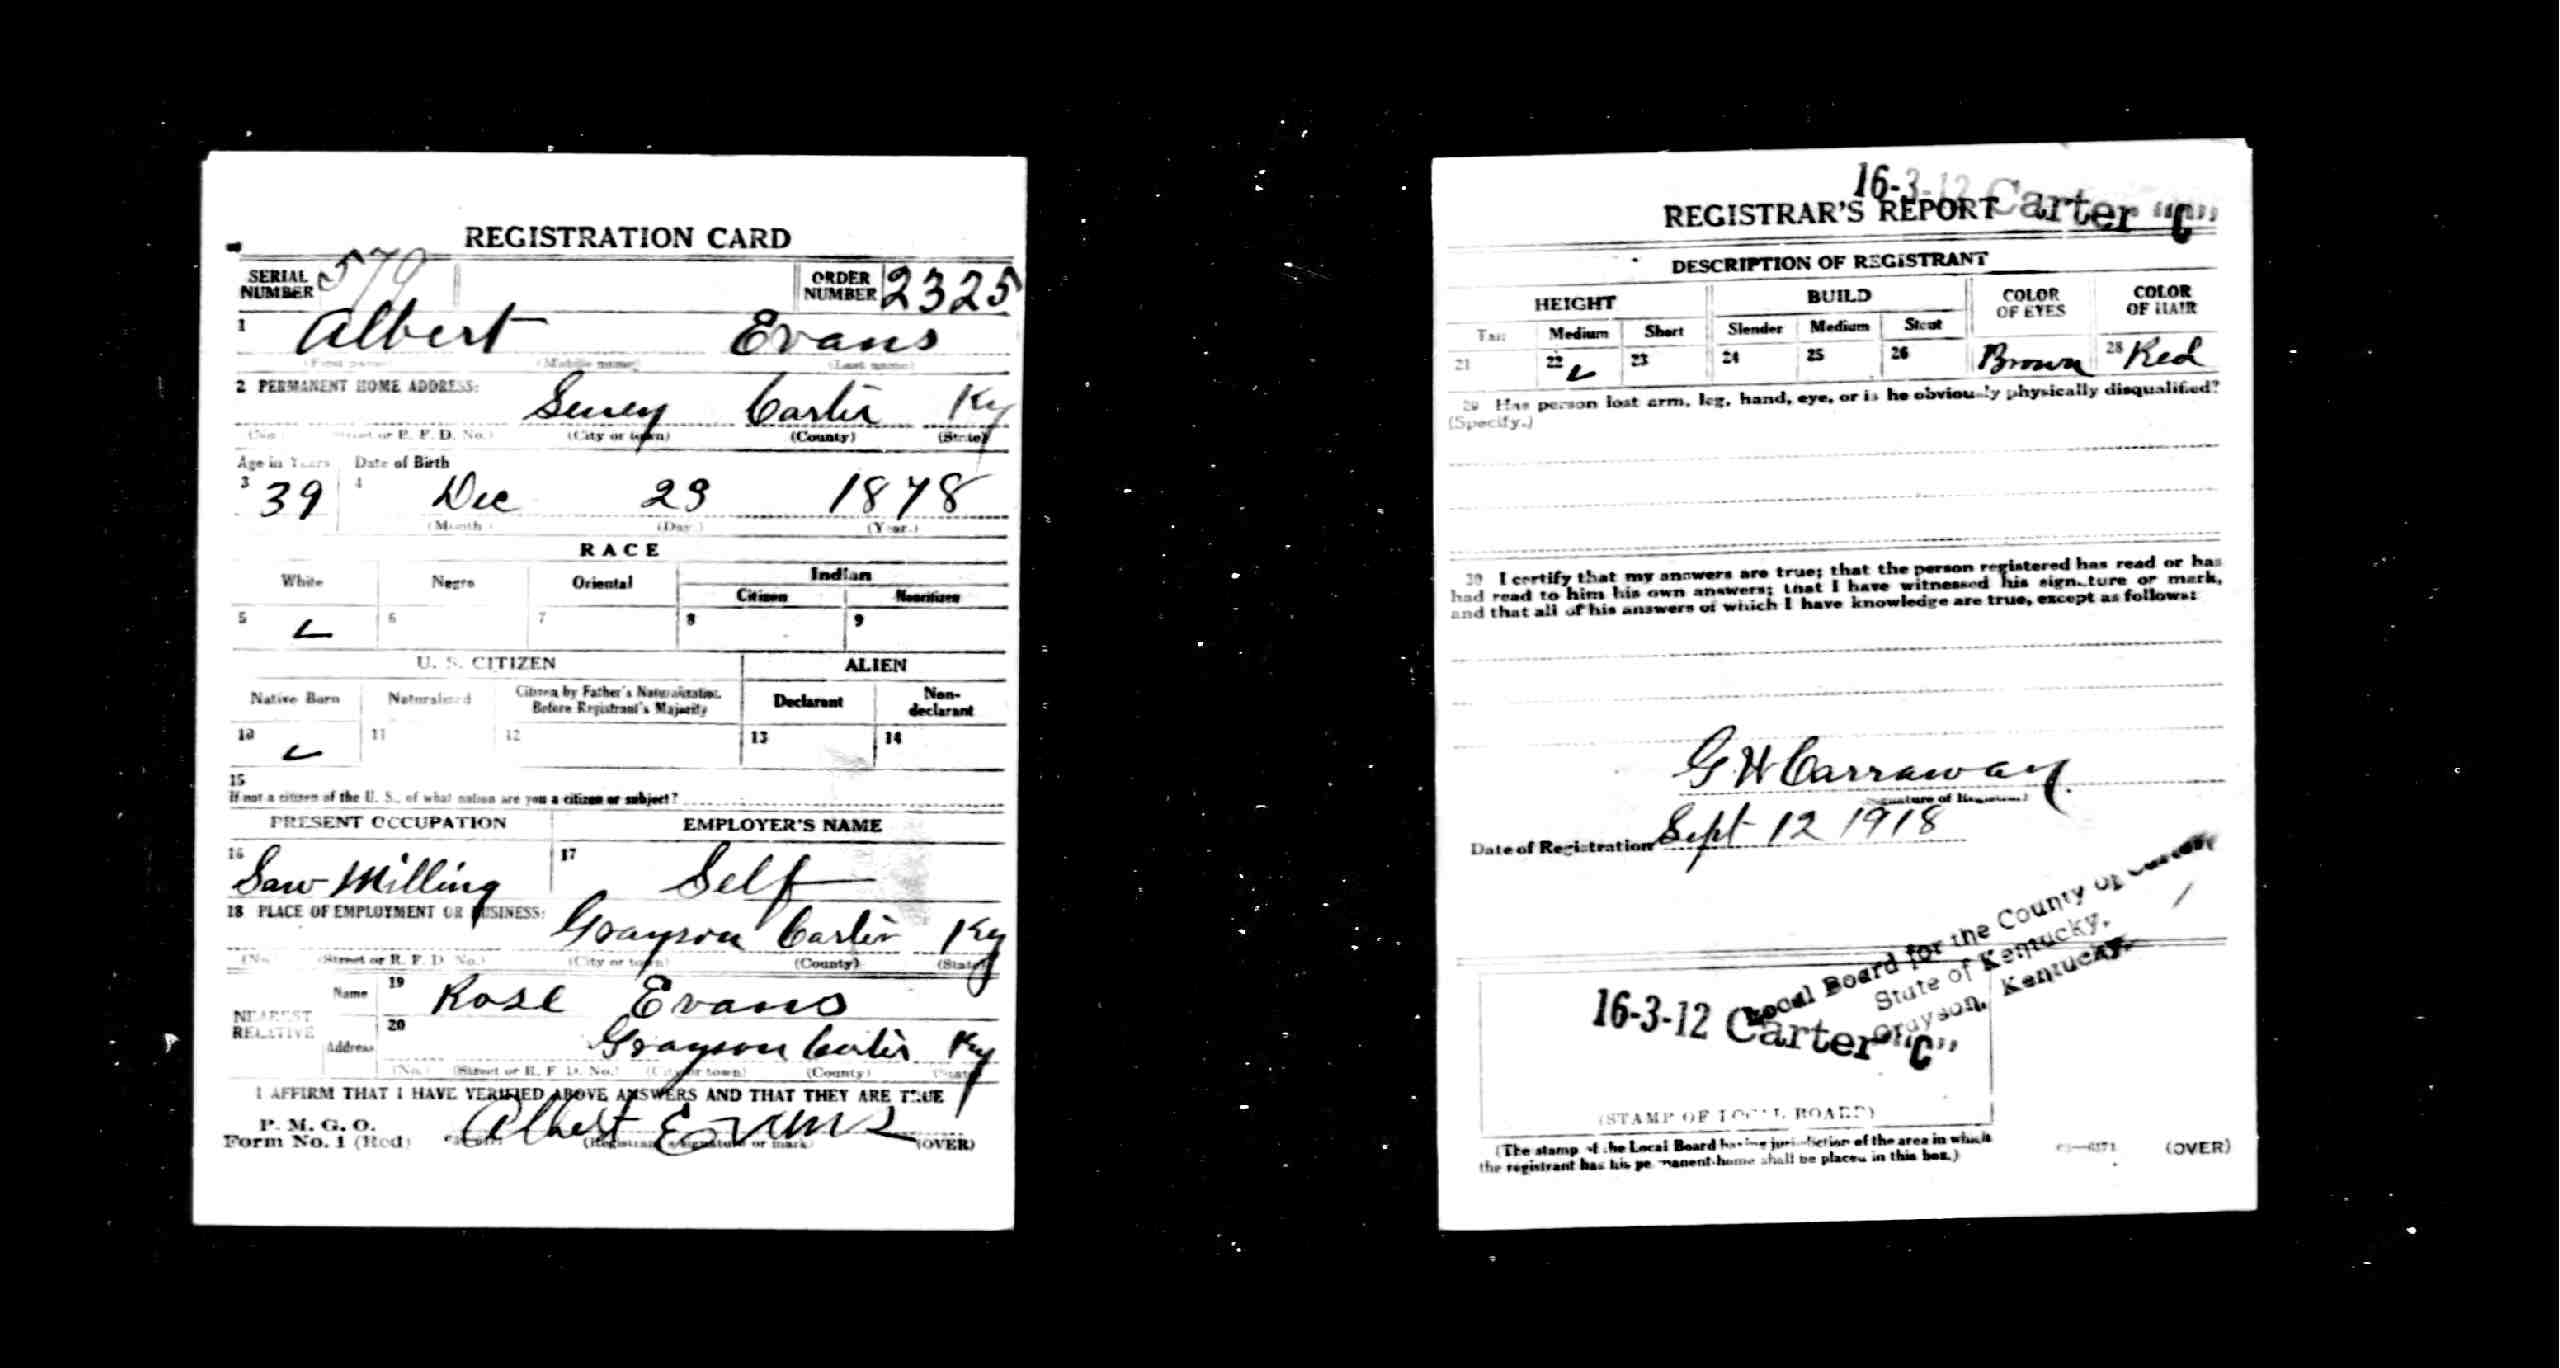 REGISTRATION CARD
SERIAL NUMBER 579
ORDER NUMBER 2325
1 Albert Evans
(First name) (Middle name) (Last name)
2 PERMANENT HOME ADDRESS:
Carter Ky
(No.) (Street or R. F. D. No.) (City or town) (County) (State)
Age in Years Date of Birth
3 39 4 Dec 23 1878
(Month) (Day.) (Year.)
RACE
White Negro Oriental Indian
Citizen Noncitizen
5 6 7 8 9
U. S. CITIZEN ALIEN
Native Born Naturalized Citizen by Father's Naturalization Before Registrant's Majority Declarant Non-declarant
10 11 12 13 14
15
If not a citizen of the U. S., of what nation are you a citizen or subject?
PRESENT OCCUPATION EMPLOYER'S NAME
16 Saw Milling 17 Self
18 PLACE OF EMPLOYMENT OR BUSINESS:
Grayson Carter Ky
(No.) (Street or R. F. D. No.) (City or town) (County) (State)
NEAREST RELATIVE
Name 19 Rose Evans
Address 20 Grayson Carter Ky
(No.) (Street or R. F. D. No.) (City or town) (County) (State)
I AFFIRM THAT I HAVE VERIFIED ABOVE ANSWERS AND THAT THEY ARE TRUE
P. M. G. O.
Form No. 1 (Red) Albert Evans
(Registrant's signature or mark) (OVER)
16-3-12 Carter "C"
REGISTRAR'S REPORT
DESCRIPTION OF REGISTRANT
HEIGHT BUILD COLOR OF EYES COLOR OF HAIR
Tall Medium Short Slender Medium Stout
21 22 23 24 25 26 Brown 28 Red
29 Has person lost arm, leg, hand, eye, or is he obviously physically disqualified?
(Specify.)
30 I certify that my answers are true; that the person registered has read or has
had read to him his own answers; that I have witnessed his signature or mark,
and that all of his answers of which I have knowledge are true, except as follows:
G H Carraway
(Signature of Registrar)
Date of Registration Sept 12 1918
Local Board for the County of Carter
State of Kentucky,
Grayson, Kentucky.
16-3-12 Carter "C"
(STAMP OF LOCAL BOARD)
(The stamp of the Local Board having jurisdiction of the area in which
the registrant has his permanent home shall be placed in this box.)
(OVER)